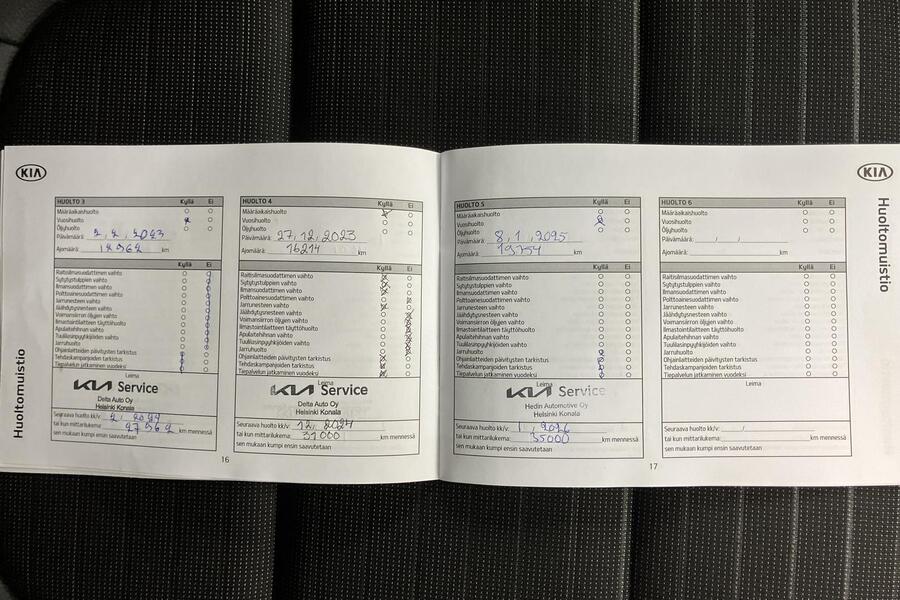 KIA
Huoltomuistio
HUOLTO 3 Kyllä Ei
Määräaikaishuolto
Vuosihuolto
Öljyhuolto
Päivämäärä: 2, 2, 2023
Ajomäärä: 12962 km
Kyllä Ei
Raitisilmasuodattimen vaihto
Sytytystulppien vaihto
Ilmansuodattimen vaihto
Polttoainesuodattimen vaihto
Jarrunesteen vaihto
Jäähdytysnesteen vaihto
Voimansiirron öljyjen vaihto
Ilmastointilaitteen täyttöhuolto
Apulaitehihnan vaihto
Tuulilasinpyyhkijöiden vaihto
Jarruhuolto
Ohjainlaitteiden päivitysten tarkistus
Tehdaskampanjoiden tarkistus
Tiepalvelun jatkaminen vuodeksi
Leima
KIA Service
Delta Auto Oy
Helsinki Konala
Seuraava huolto kk/v: 2, 2024
tai kun mittarilukema: 27962 km mennessä
sen mukaan kumpi ensin saavutetaan
16
HUOLTO 4 Kyllä Ei
Määräaikaishuolto
Vuosihuolto
Öljyhuolto
Päivämäärä: 27, 12, 2023
Ajomäärä: 16214 km
Kyllä Ei
Raitisilmasuodattimen vaihto
Sytytystulppien vaihto
Ilmansuodattimen vaihto
Polttoainesuodattimen vaihto
Jarrunesteen vaihto
Jäähdytysnesteen vaihto
Voimansiirron öljyjen vaihto
Ilmastointilaitteen täyttöhuolto
Apulaitehihnan vaihto
Tuulilasinpyyhkijöiden vaihto
Jarruhuolto
Ohjainlaitteiden päivitysten tarkistus
Tehdaskampanjoiden tarkistus
Tiepalvelun jatkaminen vuodeksi
Leima
KIA Service
Delta Auto Oy
Helsinki Konala
Seuraava huolto kk/v: 12, 2024
tai kun mittarilukema: 31000 km mennessä
sen mukaan kumpi ensin saavutetaan
HUOLTO 5 Kyllä Ei
Määräaikaishuolto
Vuosihuolto
Öljyhuolto
Päivämäärä: 8, 1, 2025
Ajomäärä: 19754 km
Kyllä Ei
Raitisilmasuodattimen vaihto
Sytytystulppien vaihto
Ilmansuodattimen vaihto
Polttoainesuodattimen vaihto
Jarrunesteen vaihto
Jäähdytysnesteen vaihto
Voimansiirron öljyjen vaihto
Ilmastointilaitteen täyttöhuolto
Apulaitehihnan vaihto
Tuulilasinpyyhkijöiden vaihto
Jarruhuolto
Ohjainlaitteiden päivitysten tarkistus
Tehdaskampanjoiden tarkistus
Tiepalvelun jatkaminen vuodeksi
Leima
KIA Service
Hedin Automotive Oy
Helsinki Konala
Seuraava huolto kk/v: 1, 2026
tai kun mittarilukema: 35000 km mennessä
sen mukaan kumpi ensin saavutetaan
17
HUOLTO 6 Kyllä Ei
Määräaikaishuolto
Vuosihuolto
Öljyhuolto
Päivämäärä: / /
Ajomäärä: km
Kyllä Ei
Raitisilmasuodattimen vaihto
Sytytystulppien vaihto
Ilmansuodattimen vaihto
Polttoainesuodattimen vaihto
Jarrunesteen vaihto
Jäähdytysnesteen vaihto
Voimansiirron öljyjen vaihto
Ilmastointilaitteen täyttöhuolto
Apulaitehihnan vaihto
Tuulilasinpyyhkijöiden vaihto
Jarruhuolto
Ohjainlaitteiden päivitysten tarkistus
Tehdaskampanjoiden tarkistus
Tiepalvelun jatkaminen vuodeksi
Leima
Seuraava huolto kk/v: /
tai kun mittarilukema: km mennessä
sen mukaan kumpi ensin saavutetaan
KIA
Huoltomuistio